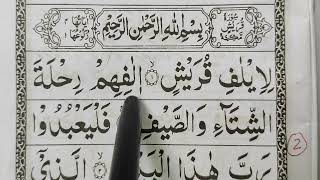 بِسْمِ اللهِ الرَّحْمٰنِ الرَّحِيْمِ
لِاِيْلٰفِ قُرَيْشٍ اٖلٰفِهِمْ رِحْلَةَ
الشِّتَآءِ وَالصَّيْفِ فَلْيَعْبُدُوْا
رَبَّ هٰذَا الَّذِيْٓ
2